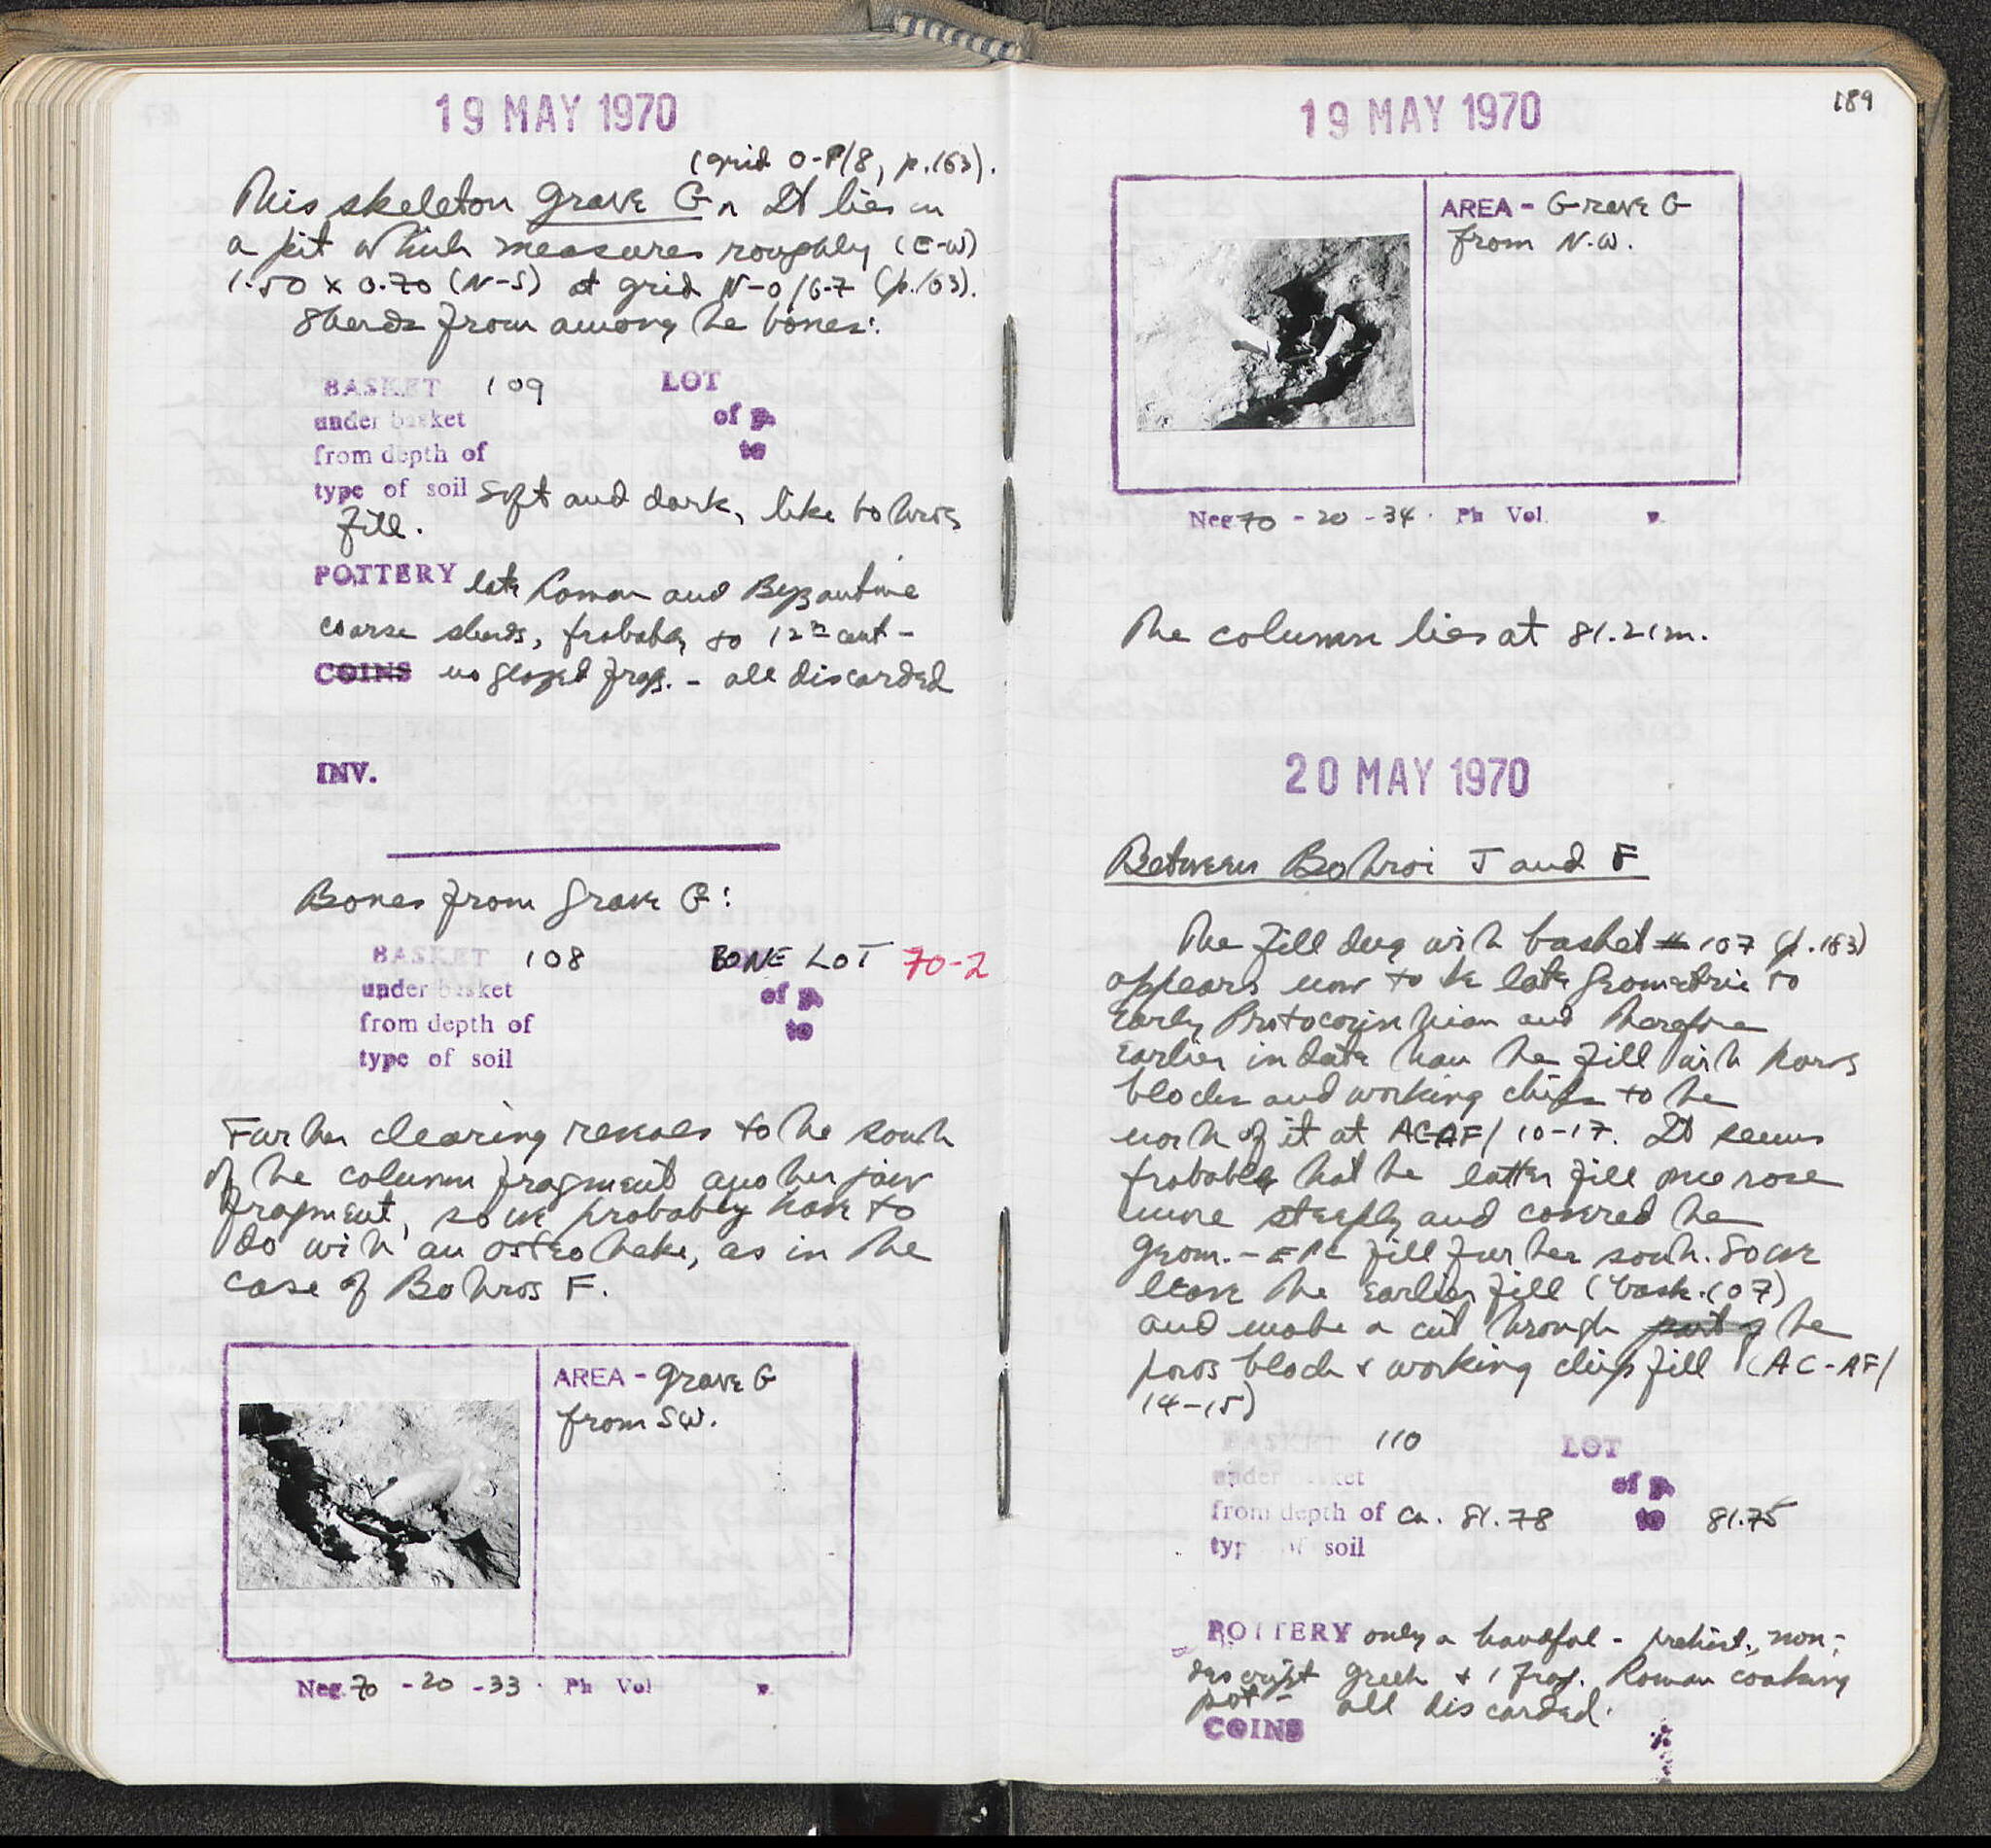 19 MAY 1970
(grid O-P/8, p.163).
This skeleton Grave G. It lies in
a pit which measures roughly (E-W)
1.50 x 0.70 (N-S) at grid N-O/6-7 (p.163).
Sherds from among the bones:
BASKET 109 LOT
under basket of p.
from depth of to
type of soil Soft and dark, like bothros
fill.
POTTERY late Roman and Byzantine
coarse sherds, probably to 12th cent -
COINS no glazed frags. - all discarded
INV.
Bones from Grave G:
BASKET 108 BONE LOT 70-2
under basket of p.
from depth of to
type of soil
Further clearing reveals to the south
of the column fragment another jaw
fragment, so we probably have to
do with an osteotheke, as in the
case of Bothros F.
AREA - Grave G
from SW.
Neg. 70 - 20 - 33 . Ph Vol p.
19 MAY 1970
189
AREA - Grave G
from N.W.
Neg. 70 - 20 - 34 . Ph Vol. p.
The column lies at 81.21m.
20 MAY 1970
Between Bothroi J and F
The fill dug with basket # 107 (p.183)
appears now to be late Geometric to
Early Protocorinthian and therefore
earlier in date than the fill with poros
blocks and working chips to the
north of it at AC-AF/10-17. It seems
probable that the latter fill once rose
more steeply and covered the
Geom. - EPC fill further south. So we
leave the earlier fill (bask.107)
and make a cut through part of the
poros block & working chips fill (AC-AF/
14-15)
BASKET 110 LOT
under basket of p.
from depth of ca. 81.78 to 81.75
type of soil
POTTERY only a handful - prehist., non-
descript Greek & 1 frag. Roman cooking
pot - all discarded.
COINS